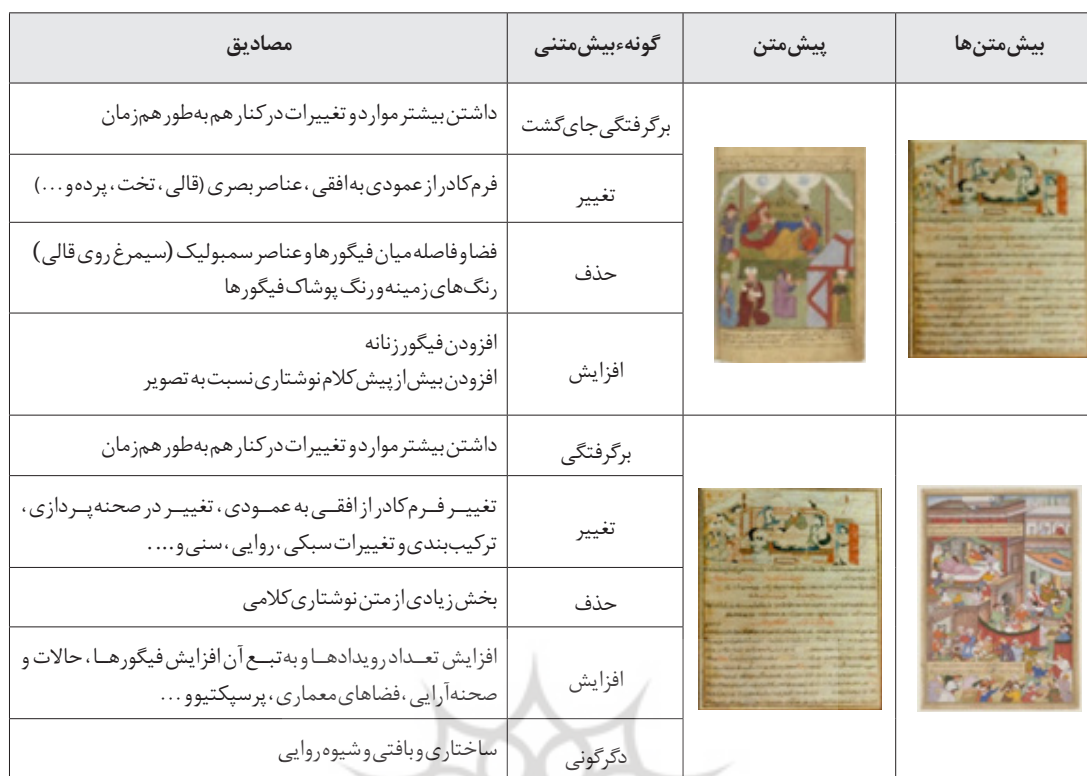 بیش‌متن‌ها پیش‌متن گونهٔ بیش‌متنی مصادیق
برگرفتگی جای‌گشت داشتن بیشتر موارد و تغییرات در کنار هم به‌طور هم‌زمان
تغییر فرم کادر از عمودی به افقی، عناصر بصری (قالی، تخت، پرده و...)
حذف فضا و فاصله میان فیگورها و عناصر سمبولیک (سیمرغ روی قالی)
رنگ‌های زمینه و رنگ پوشاک فیگورها
افزایش افزودن فیگور زنانه
افزودن بیش از پیش کلام نوشتاری نسبت به تصویر
برگرفتگی داشتن بیشتر موارد و تغییرات در کنار هم به‌طور هم‌زمان
تغییر تغییر فرم کادر از افقی به عمودی، تغییر در صحنه‌پردازی،
ترکیب‌بندی و تغییرات سبکی، روایی، سنی و....
حذف بخش زیادی از متن نوشتاری کلامی
افزایش افزایش تعداد رویدادها و به تبع آن افزایش فیگورها، حالات و
صحنه‌آرایی، فضاهای معماری، پرسپکتیو و...
دگرگونی ساختاری و بافتی و شیوه روایی